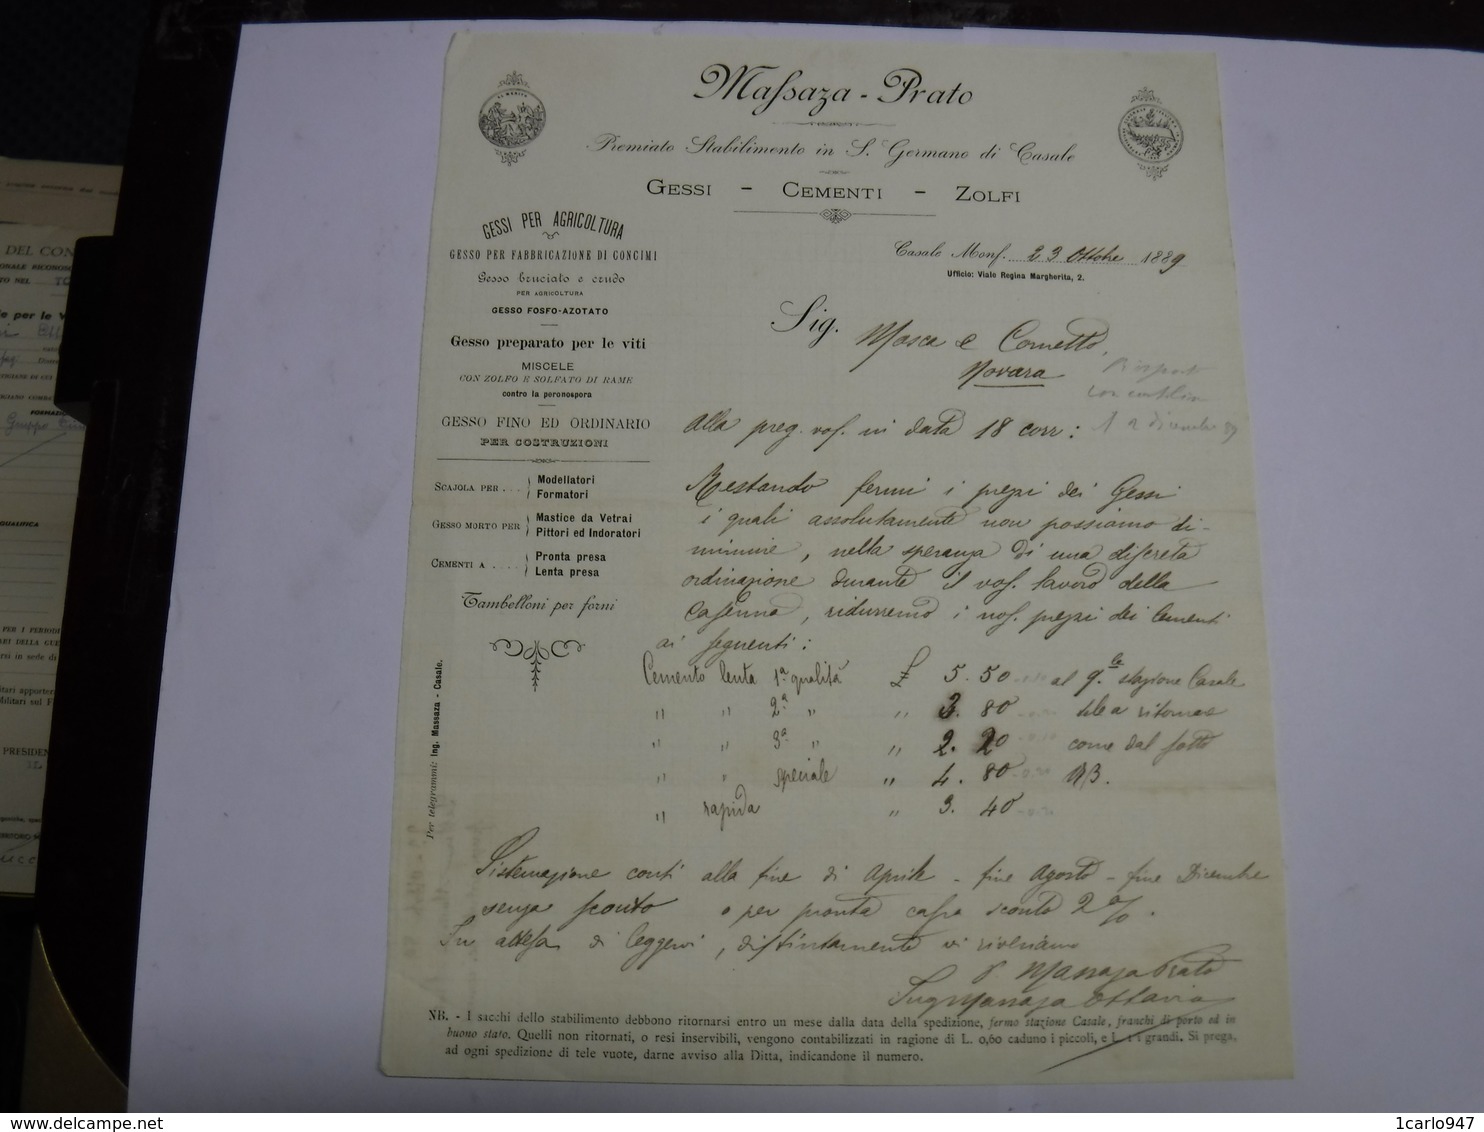 Massaza - Prato
Premiato Stabilimento in S. Germano di Casale
GESSI - CEMENTI - ZOLFI
GESSI PER AGRICOLTURA
GESSO PER FABBRICAZIONE DI CONCIMI
Gesso bruciato e crudo
PER AGRICOLTURA
GESSO FOSFO-AZOTATO
Gesso preparato per le viti
MISCELE
CON ZOLFO E SOLFATO DI RAME
contro la peronospora
GESSO FINO ED ORDINARIO
PER COSTRUZIONI
SCAJOLA PER . . . Modellatori
Formatori
GESSO MORTO PER Mastice da Vetrai
Pittori ed Indoratori
CEMENTI A . . . . Pronta presa
Lenta presa
Tambelloni per forni
Per telegrammi: Ing. Massaza - Casale.
Casale Monf. 23 Ottobre 1889
Ufficio: Viale Regina Margherita, 2.
Sig. Mosca e Cometto,
Novara
Risposto
con
1 2 dicembre 89
Alla preg. vos. in data 18 corr:
Restando fermi i prezzi dei Gessi
i quali assolutamente non possiamo di-
minuire, nella speranza di una discreta
ordinazione durante il vos. lavoro della
Caserma, ridurremo i nos. prezzi dei Cementi
ai seguenti:
Cemento lenta 1ª qualità £ 5.50 al q.le stazione Casale
" " 2ª " " 3.80 tele a ritornare
" " 3ª " " 2.20 come dal sotto
" " speciale " 4.80 NB.
" rapida " 3.40
Sistemazione conti alla fine di Aprile - fine Agosto - fine Dicembre
senza sconto o per pronta cassa sconto 2%.
In attesa di leggervi, distintamente vi riveriamo
p. Massaza Prato
Ing Massaza Ottavio
NB. - I sacchi dello stabilimento debbono ritornarsi entro un mese dalla data della spedizione, fermo stazione Casale, franchi di porto ed in
buono stato. Quelli non ritornati, o resi inservibili, vengono contabilizzati in ragione di L. 0,60 caduno i piccoli, e L. 1 i grandi. Si prega,
ad ogni spedizione di tele vuote, darne avviso alla Ditta, indicandone il numero.
DEL CON
PRESIDEN
Gruppo
1carlo947